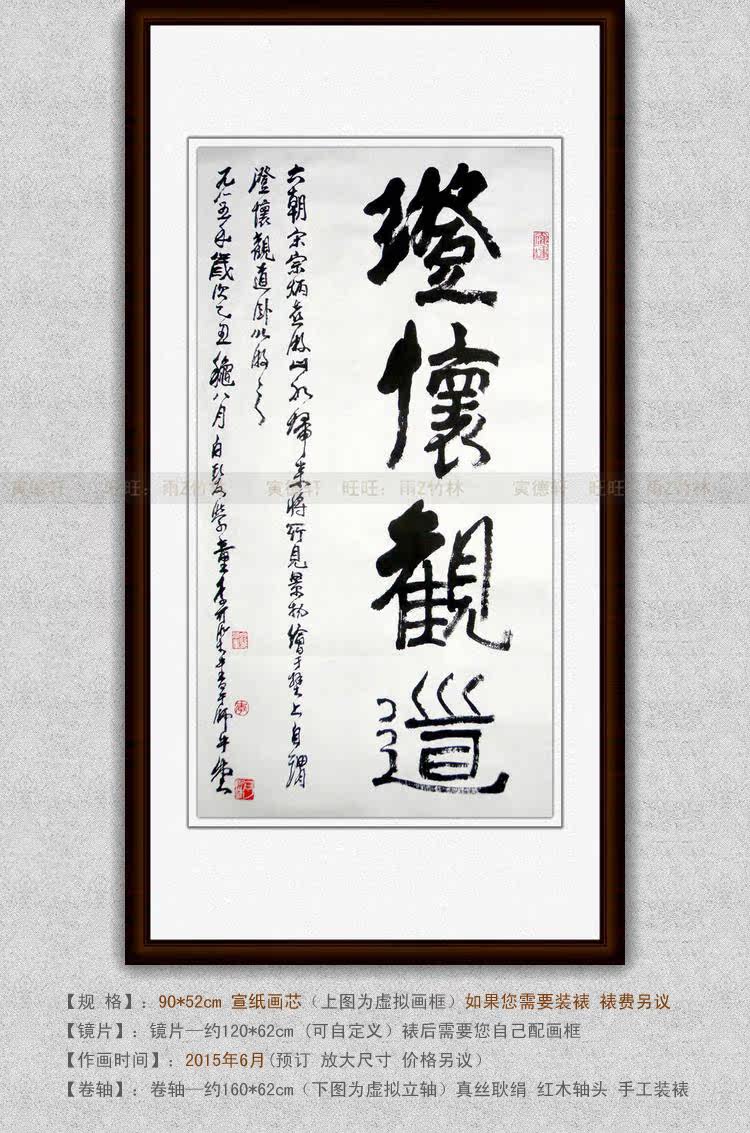 澄懷觀道
六朝宋宗炳遊山水歸來將所見景物繪于壁上自謂
澄懷觀道卧以遊之
一九八五年歲次乙丑龝八月白學童李可染師牛堂
寅德轩 旺旺：雨Z竹林 寅德轩 旺旺：雨Z竹林 寅德轩 旺旺：雨Z竹林
【规 格】：90*52cm 宣纸画芯（上图为虚拟画框）如果您需要装裱 裱费另议
【镜片】：镜片—约120*62cm（可自定义）裱后需要您自己配画框
【作画时间】：2015年6月(预订 放大尺寸 价格另议）
【卷轴】：卷轴—约160*62cm（下图为虚拟立轴）真丝耿绢 红木轴头 手工装裱